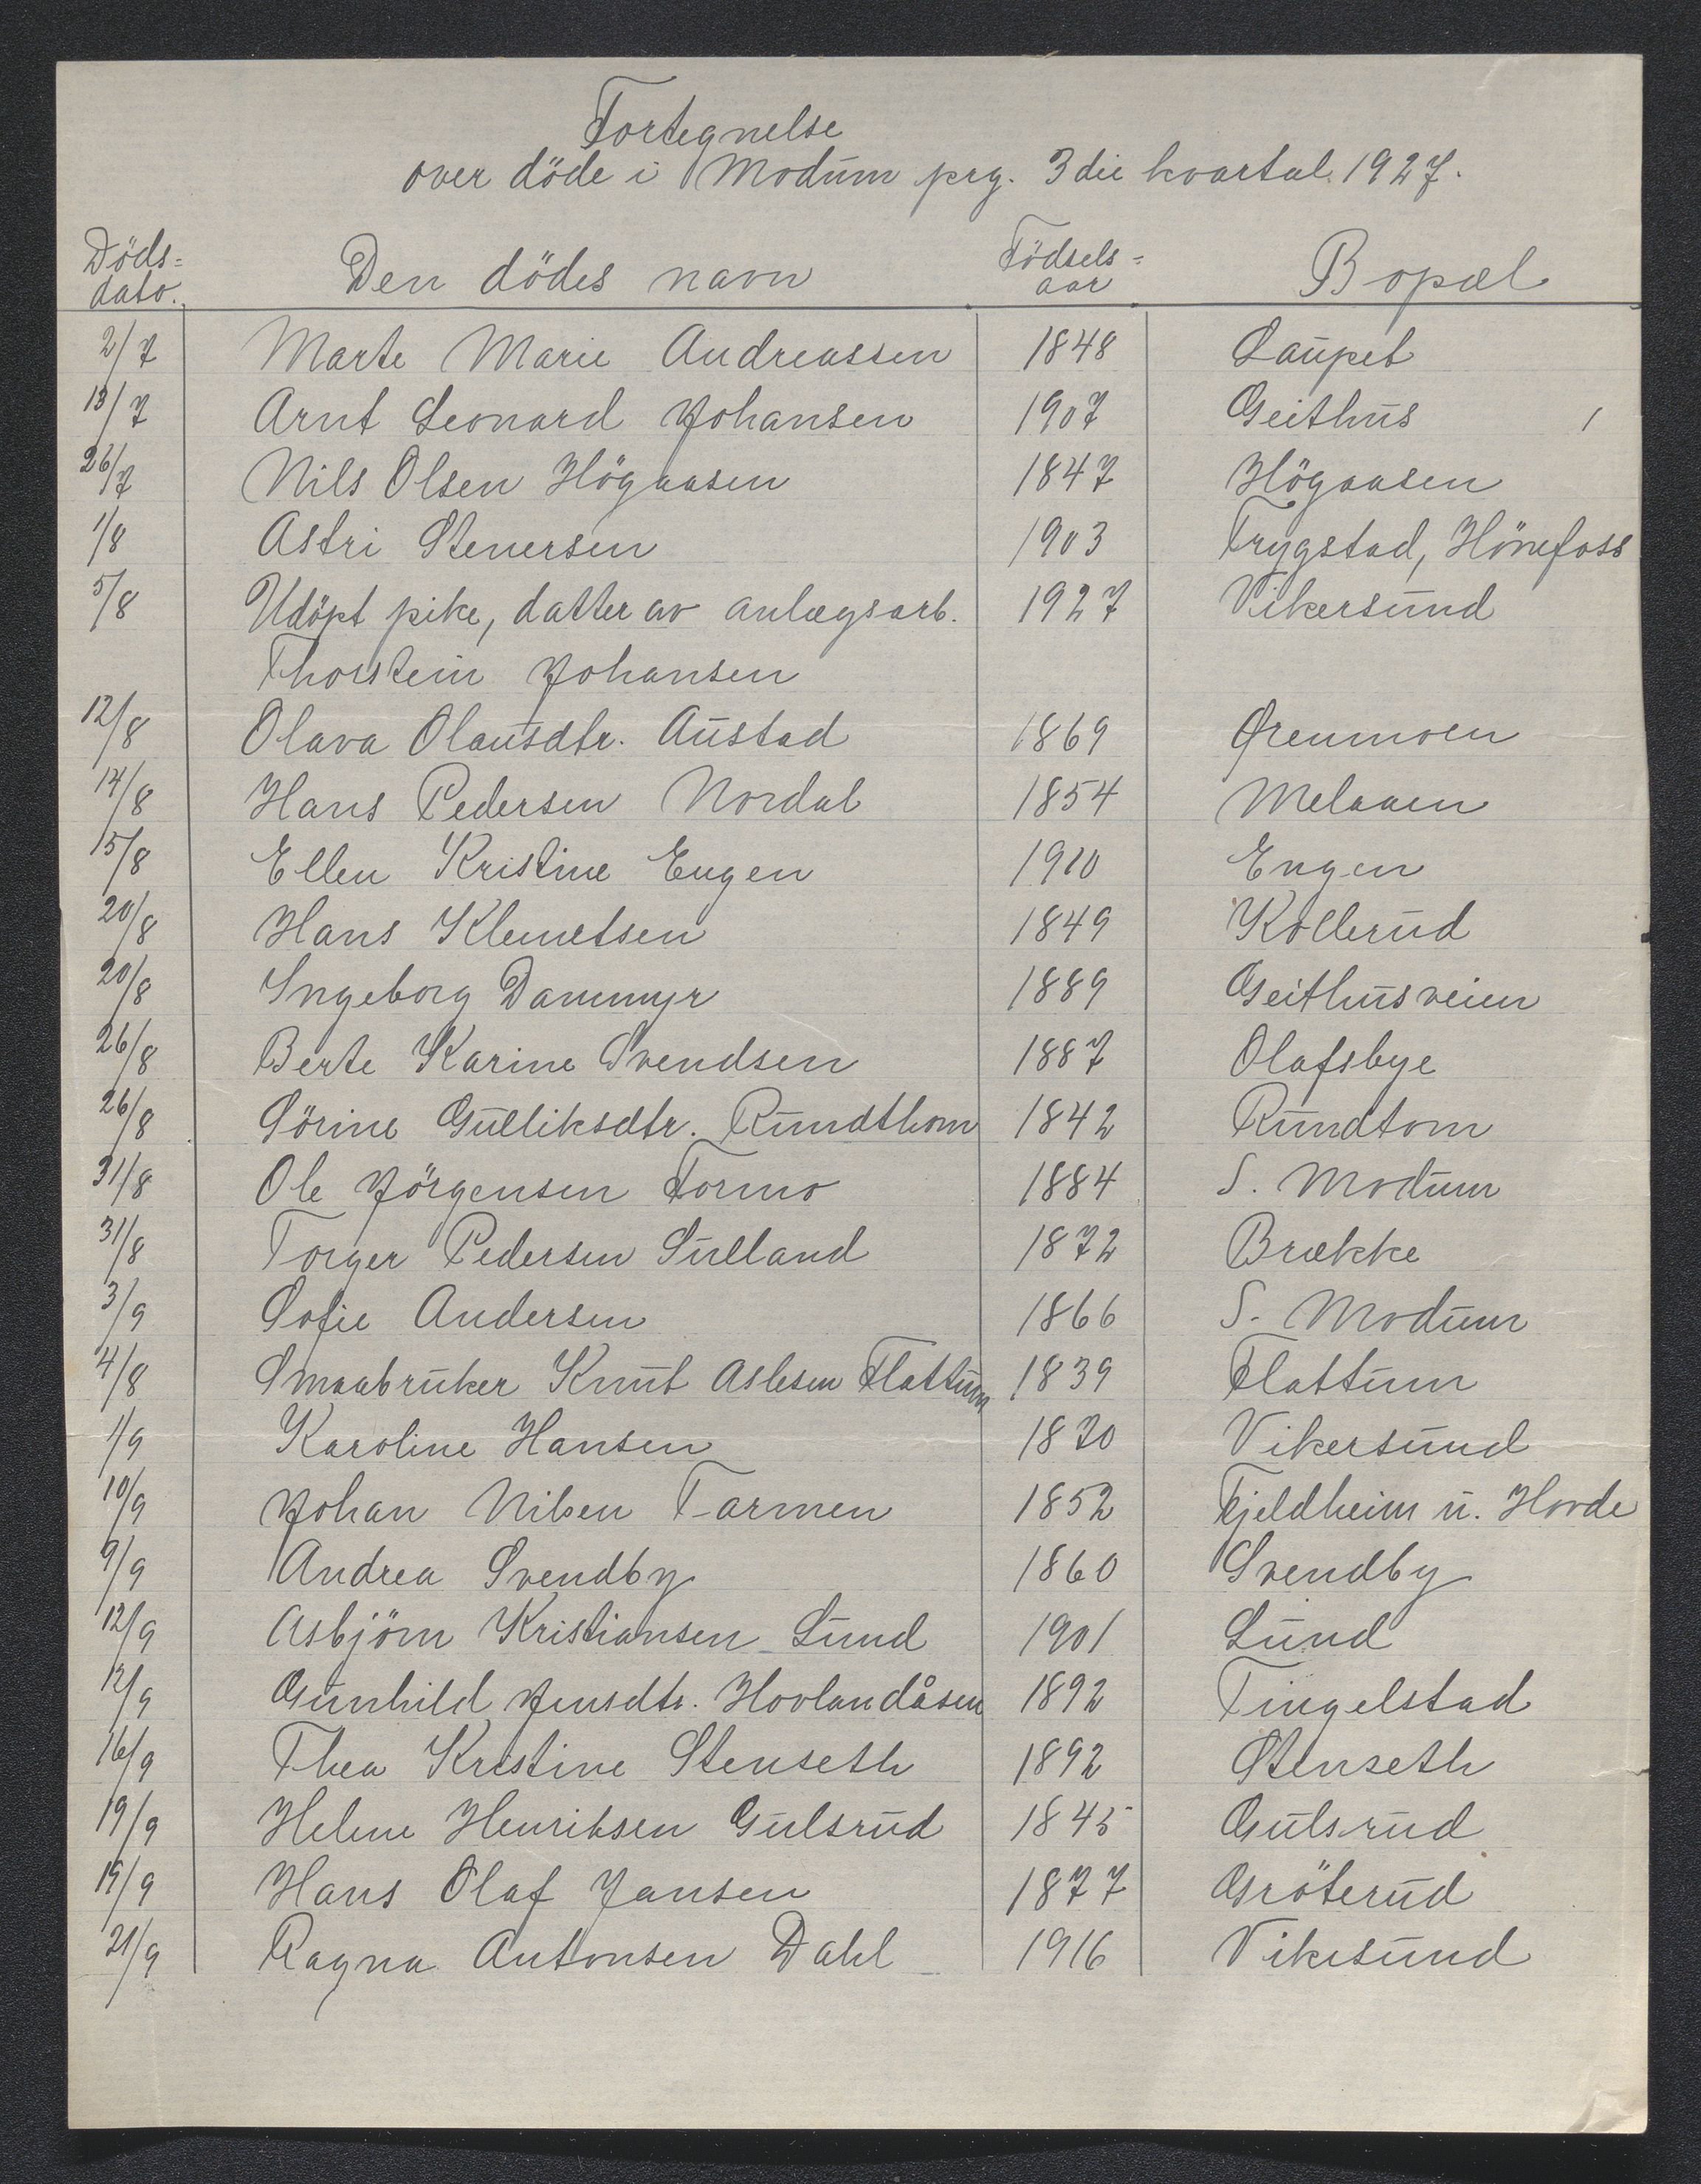 Fortegnelse
over döde i Modum prg. 3die kvartal 1927.
Döds= Den dödes navn Födsels= Bopæl
dato. aar
2/7 Marte Marie Andreassen 1848 Laupet
13/7 Arnt Leonard Johansen 1907 Geithus
26/7 Nils Olsen Högaasen 1847 Högaasen
1/8 Astri Stenersen 1903 Trygstad, Hönefoss
5/8 Udöpt pike, datter av anlægsarb. 1927 Vikersund
Thorstein Johansen
12/8 Olava Olausdtr. Austad 1869 Grenmoen
14/8 Hans Pedersen Nordal 1854 Melaaen
15/8 Ellen Kristine Engen 1910 Engen
20/8 Hans Klemetsen 1849 Kollerud
20/8 Ingeborg Dammyr 1889 Geithusveien
26/8 Berte Karine Svendsen 1887 Olafsbye
26/8 Sörine Gulliksdtr. Rundthom 1842 Rundtom
31/8 Ole Jörgensen Formo 1884 S. Modum
31/8 Torger Pedersen Sulland 1872 Brække
3/9 Sofie Andersen 1866 S. Modum
4/8 Smaabruker Knut Aslesen Flattum 1839 Flattum
1/9 Karoline Hansen 1870 Vikersund
10/9 Johan Nilsen Tarmen 1852 Fjeldheim u. Hovde
9/9 Andrea Svendby 1860 Svendby
12/9 Asbjörn Kristiansen Lund 1901 Lund
12/9 Gunhild Jensdtr. Hovlandåsen 1892 Tingelstad
16/9 Thea Kristine Stenseth 1892 Stenseth
19/9 Helene Henriksen Gulsrud 1845 Gulsrud
19/9 Hans Olaf Jansen 1877 Gröterud
21/9 Ragna Antonsen Dahl 1916 Vikesund